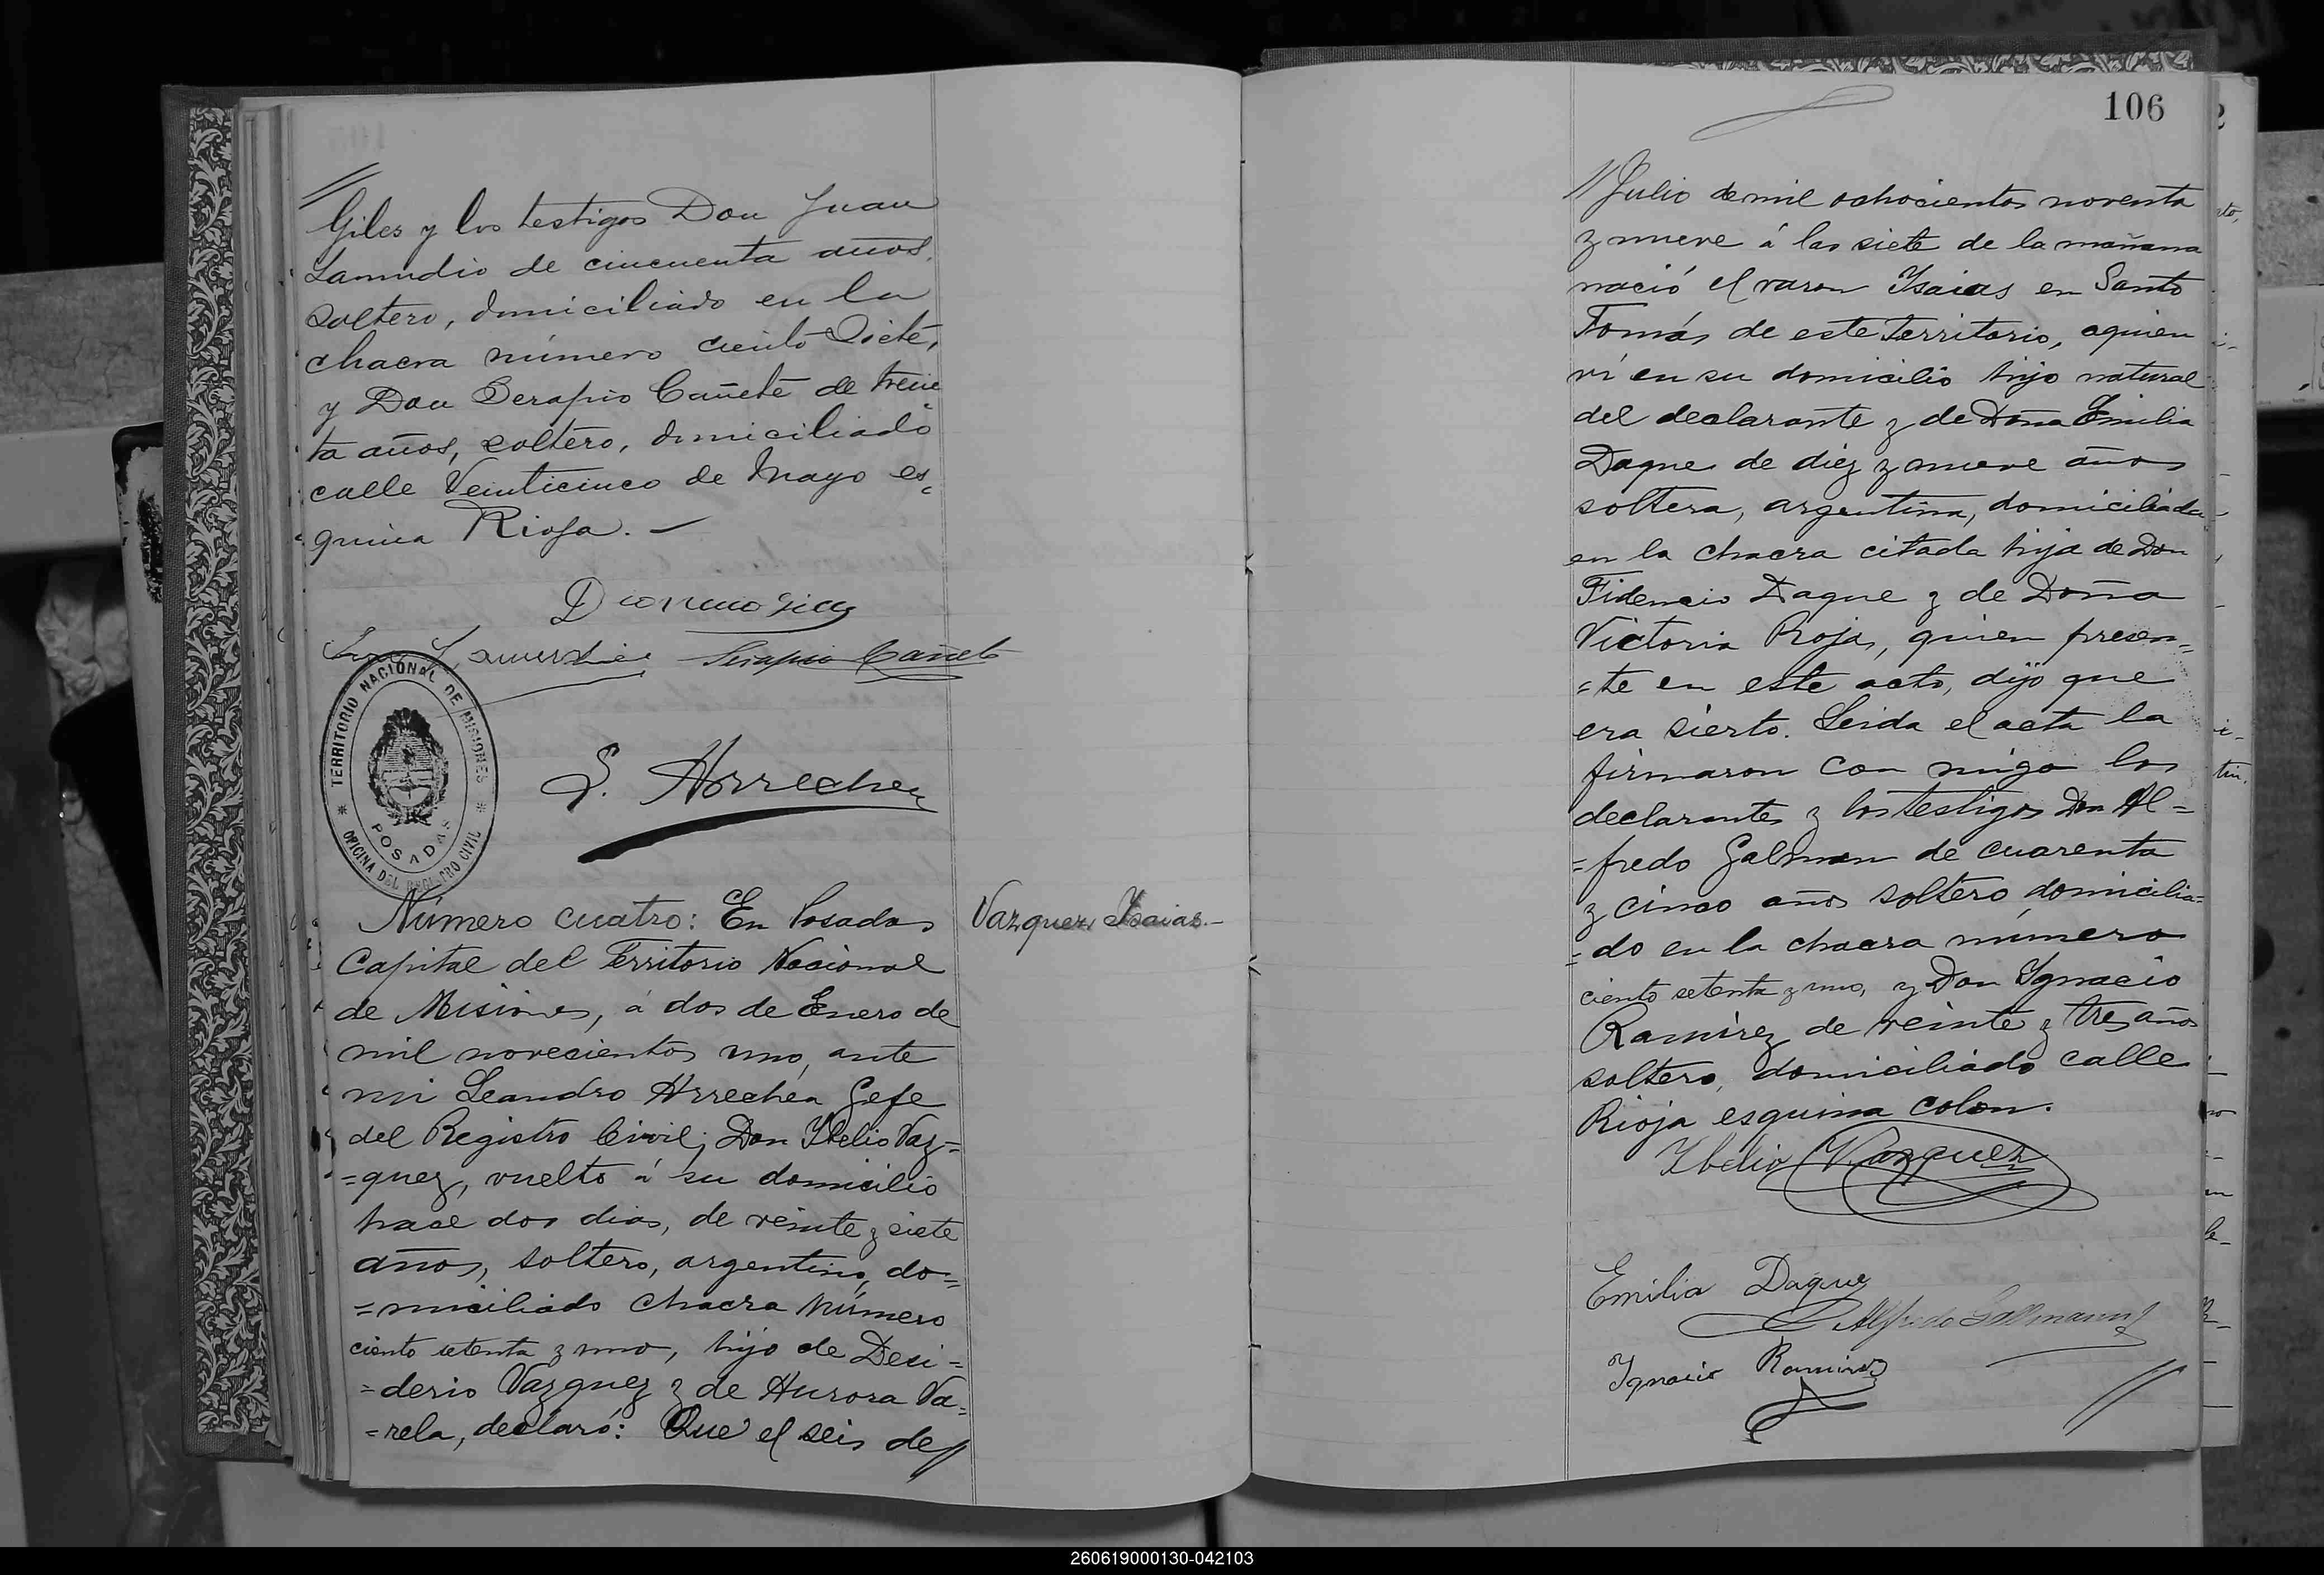 Giles y los testigos Don Juan
Lamudio de cincuenta años,
soltero, domiciliado en la
chacra número ciento Siete,
y Don Serapio Cañete de trein
ta años, soltero, domiciliado
calle Veinticinco de Mayo es-
quina Rioja. —
Serapio Cañete
TERRITORIO NACIONAL DE MISIONES
POSADAS
OFICINA DEL REGISTRO CIVIL
L. Arrechea
Vazquez, Isaias.—
Número cuatro: En Posadas
Capital del Territorio Nacional
de Misiones, á dos de Enero de
mil novecientos uno, ante
mi Leandro Arrechéa Gefe
del Registro Civil; Don Ibelio Vaz=
=quez, vuelto á su domicilio
hace dos dias, de veinte y siete
años, soltero, argentino, do=
=miciliado chacra número
ciento setenta y uno, hijo de Desi=
=derio Vazquez y de Aurora Va=
=rela, declaró: Que el seis de//
106
// Julio de mil ochocientos noventa
y nueve á las siete de la mañana
nació el varon Isaias en Santo
Tomás de este Territorio, aquien
ví en su domicilio hijo natural
del declarante y de Doña Emilia
Daque de diez y nueve años
soltera, argentina, domiciliada
en la chacra citada hija de Don
Fidencio Daque y de Doña
Victoria Rojas, quien presen=
=te en este acto, dijo que
era sierto. Leida el acta la
firmaron con migo los
declarantes y los testigos Don Al=
=fredo Galman de cuarenta
y cinco años soltero domicilia=
=do en la chacra número
ciento setenta y uno, y Don Ignacio
Ramirez de veinte y tres años
soltero, domiciliado calle
Rioja esquina Colon.
Ibelio Vazquez
Emilia Daque
Alfredo Gallmann
Ignacio Ramirez
260619000130-042103